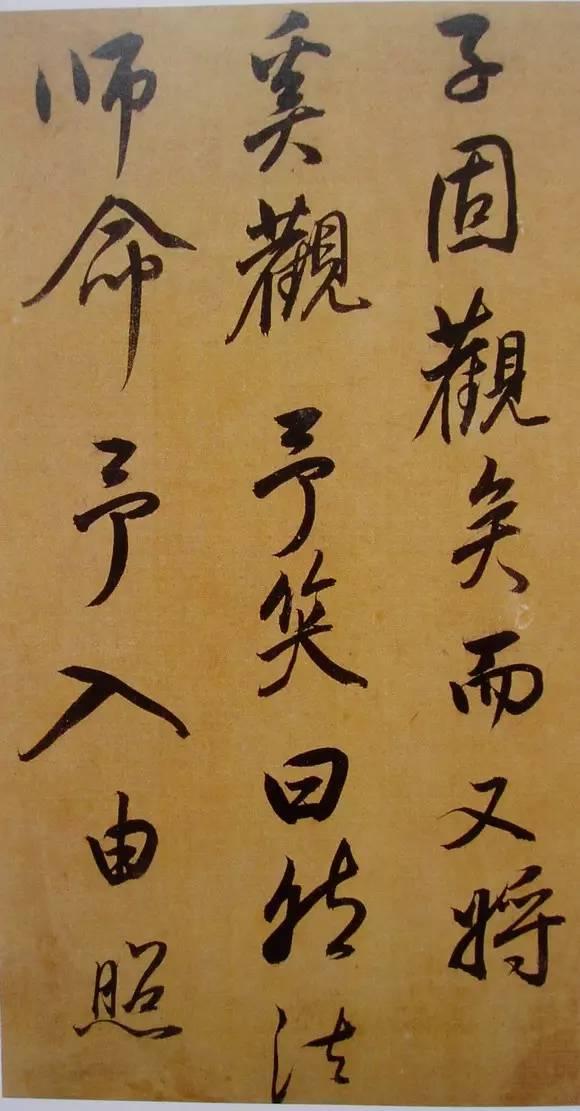 子固觀矣而又將
奚觀予笑曰然法
師命予入由照